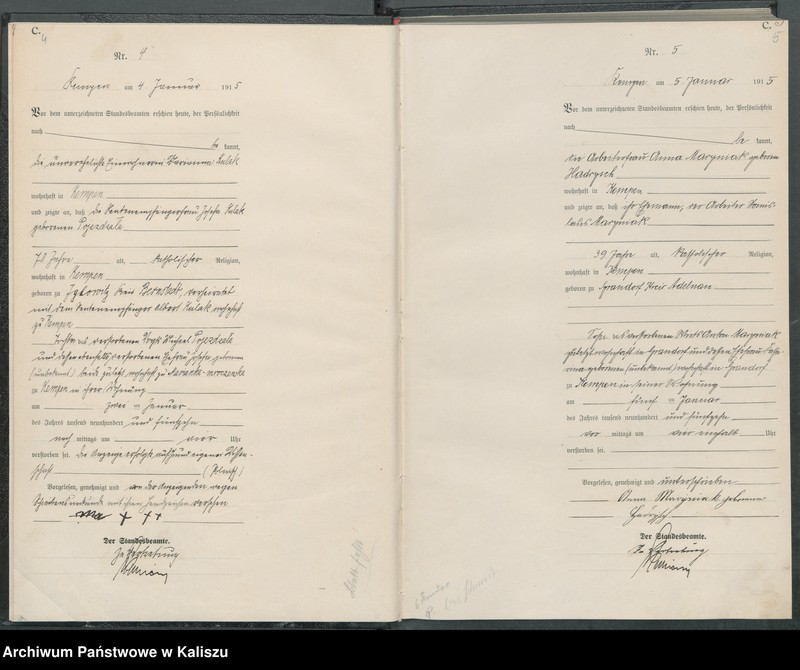 C.
4
Nr. 4
Kempen am 4. Januar 1915
Vor dem unterzeichneten Standesbeamten erschien heute, der Persönlichkeit
nach be kannt,
die unverehelichte Marianna Kulak
wohnhaft in Kempen
und zeigte an, daß die Rentenempfängerfrau Josefa Kulak
geborenen
78 Jahre alt, katholischer Religion,
wohnhaft in Kempen
geboren zu Kreis verheiratet
mit dem Rentenempfänger Albert Kulak wohnhaft
zu Kempen
Tochter des verstorbenen
und dessen ebenfalls verstorbenen Ehefrau Josefa geborenen
(unbekannt) beide zuletzt wohnhaft zu
zu Kempen in ihrer Wohnung
am zwei ten Januar
des Jahres tausend neunhundert und fünfzehn
nach mittags um vier Uhr
verstorben sei. Die Anzeige erfolgte auf Grund eigener Wissen-
schaft
Vorgelesen, genehmigt und von der Anzeigenden wegen
Schreibensunkunde mit ihrem Handzeichen versehen
+ + +
Der Standesbeamte.
In Vertretung
C.
5
Nr. 5
Kempen am 5 Januar 1915
Vor dem unterzeichneten Standesbeamten erschien heute, der Persönlichkeit
nach be kannt,
die Arbeiterfrau Anna Maryniak geborene
Hadrysch
wohnhaft in Kempen
und zeigte an, daß ihr Ehemann, der Arbeiter Stanis-
laus Maryniak
39 Jahre alt, katholischer Religion,
wohnhaft in Kempen
geboren zu Grandorf Kreis Adelnau
Sohn des verstorbenen Wirts Anton Maryniak
zuletzt wohnhaft in Grandorf und dessen Ehefrau
geborenen (unbekannt) wohnhaft in Grandorf
zu Kempen in seiner Wohnung
am fünf ten Januar
des Jahres tausend neunhundert und fünfzehn
vor mittags um vier einhalb Uhr
verstorben sei.
Vorgelesen, genehmigt und unterschrieben
Anna Maryniak geborene
Hadrysch
Der Standesbeamte.
In Vertretung
Archiwum Państwowe w Kaliszu